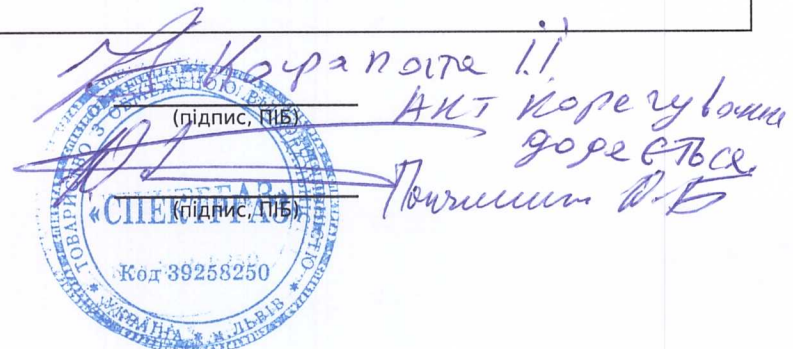 І.І.
(підпис, ПІБ)
Акт корегування
додається
(підпис, ПІБ)
ТОВАРИСТВО З ОБМЕЖЕНОЮ ВІДПОВІДАЛЬНІСТЮ
«СПЕКТРГАЗ»
Код 39258250
* УКРАЇНА * м. ЛЬВІВ *